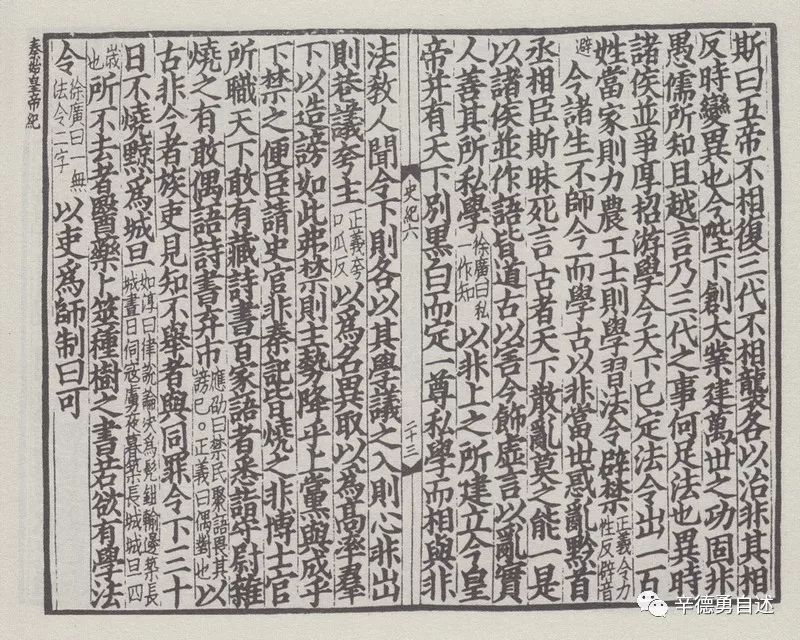 斯曰五帝不相復三代不相襲各以治非其相
反時變異也今陛下創大業建萬世之功固非
愚儒所知且越言乃三代之事何足法也異時
諸侯並爭厚招游學今天下已定法令出一百
姓當家則力農工士則學習法令辟禁正義令力性反辟音
避今諸生不師今而學古以非當世惑亂黔首
丞相臣斯昧死言古者天下散亂莫之能一是
以諸侯並作語皆道古以害今飾虛言以亂實
人善其所私學徐廣曰私一作知以非上之所建立今皇
帝并有天下別黑白而定一尊私學而相與非
史紀六
二十三
法教人聞令下則各以其學議之入則心非出
則巷議夸主正義夸口瓜反以爲名異取以爲高率羣
下以造謗如此弗禁則主勢降乎上黨與成乎
下禁之便臣請史官非秦記皆燒之非博士官
所職天下敢有藏詩書百家語者悉詣守尉雜
燒之有敢偶語詩書弃市應劭曰禁民聚語畏其謗巳。正義曰偶對也以
古非今者族吏見知不舉者與同罪令下三十
日不燒黥爲城旦如淳曰律說論決爲髠鉗輸邊築長城晝日伺寇虜夜暮築長城城旦四
歲也所不去者醫藥卜筮種樹之書若欲有學法
令徐廣曰一無法令二字以吏爲師制曰可
秦始皇帝紀
辛德勇自述